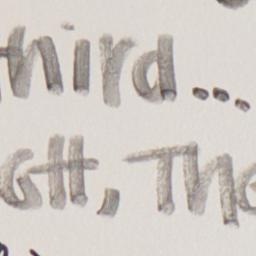 third...
GHT. The